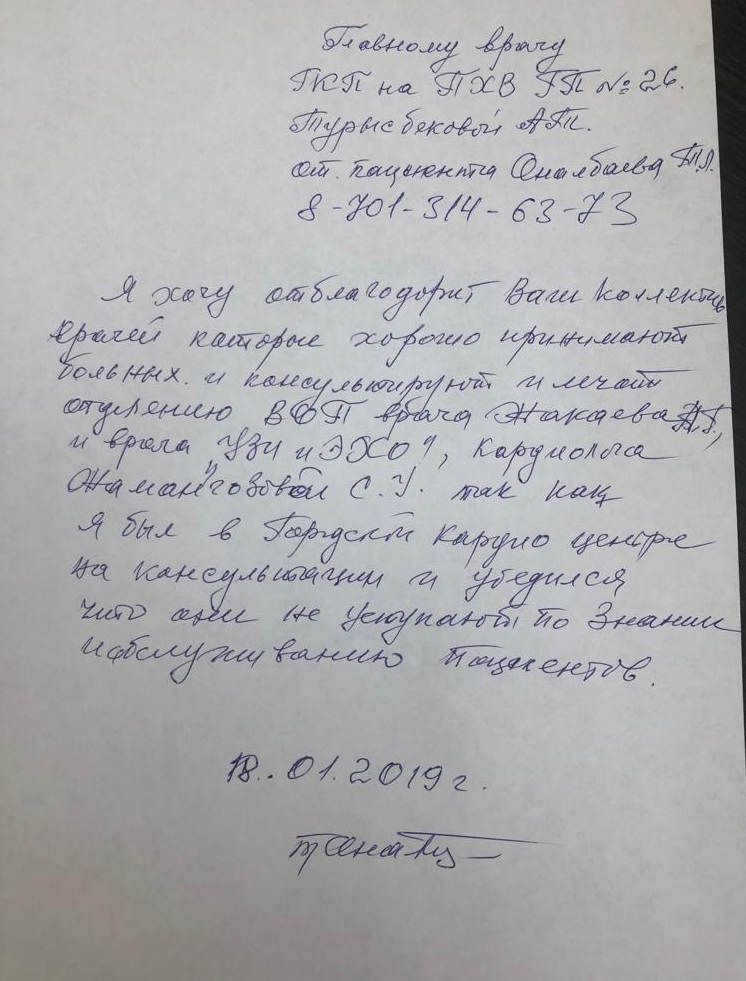 Главному врачу
ГКП на ПХВ ГП № 26.
Турысбековой А.П.
от. пациента Оналбаева Т.Л.
8-701-314-63-73
Я хочу отблагодорит Ваш коллектив
врачей каторые хорошо принимают
больных. и консультируют и лечат
отделению ВОП врача Жакаева
и врача "УЗИ и ЭХО", Кардиолога
Жамангозовой С.У. так как
Я был в Городской Кардио центре
на консультации и убедился
что они не уступают по Знании
и обслуживанию пациентов.
18.01.2019 г.